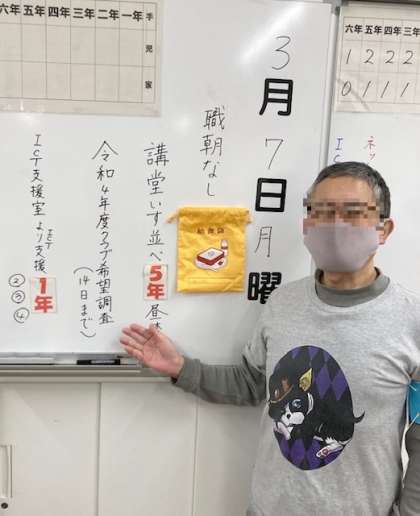 3月7日月曜
職朝なし
給食袋
講堂いす並べ 5年 昼休
令和4年度クラブ希望調査
(14日まで)
ICT支援室より支援 1年
② ③ ④
一年
二年
三年
四年
五年
六年
手
児
家
三年 2 1
四年 2 1
五年 2 1
六年 1 0